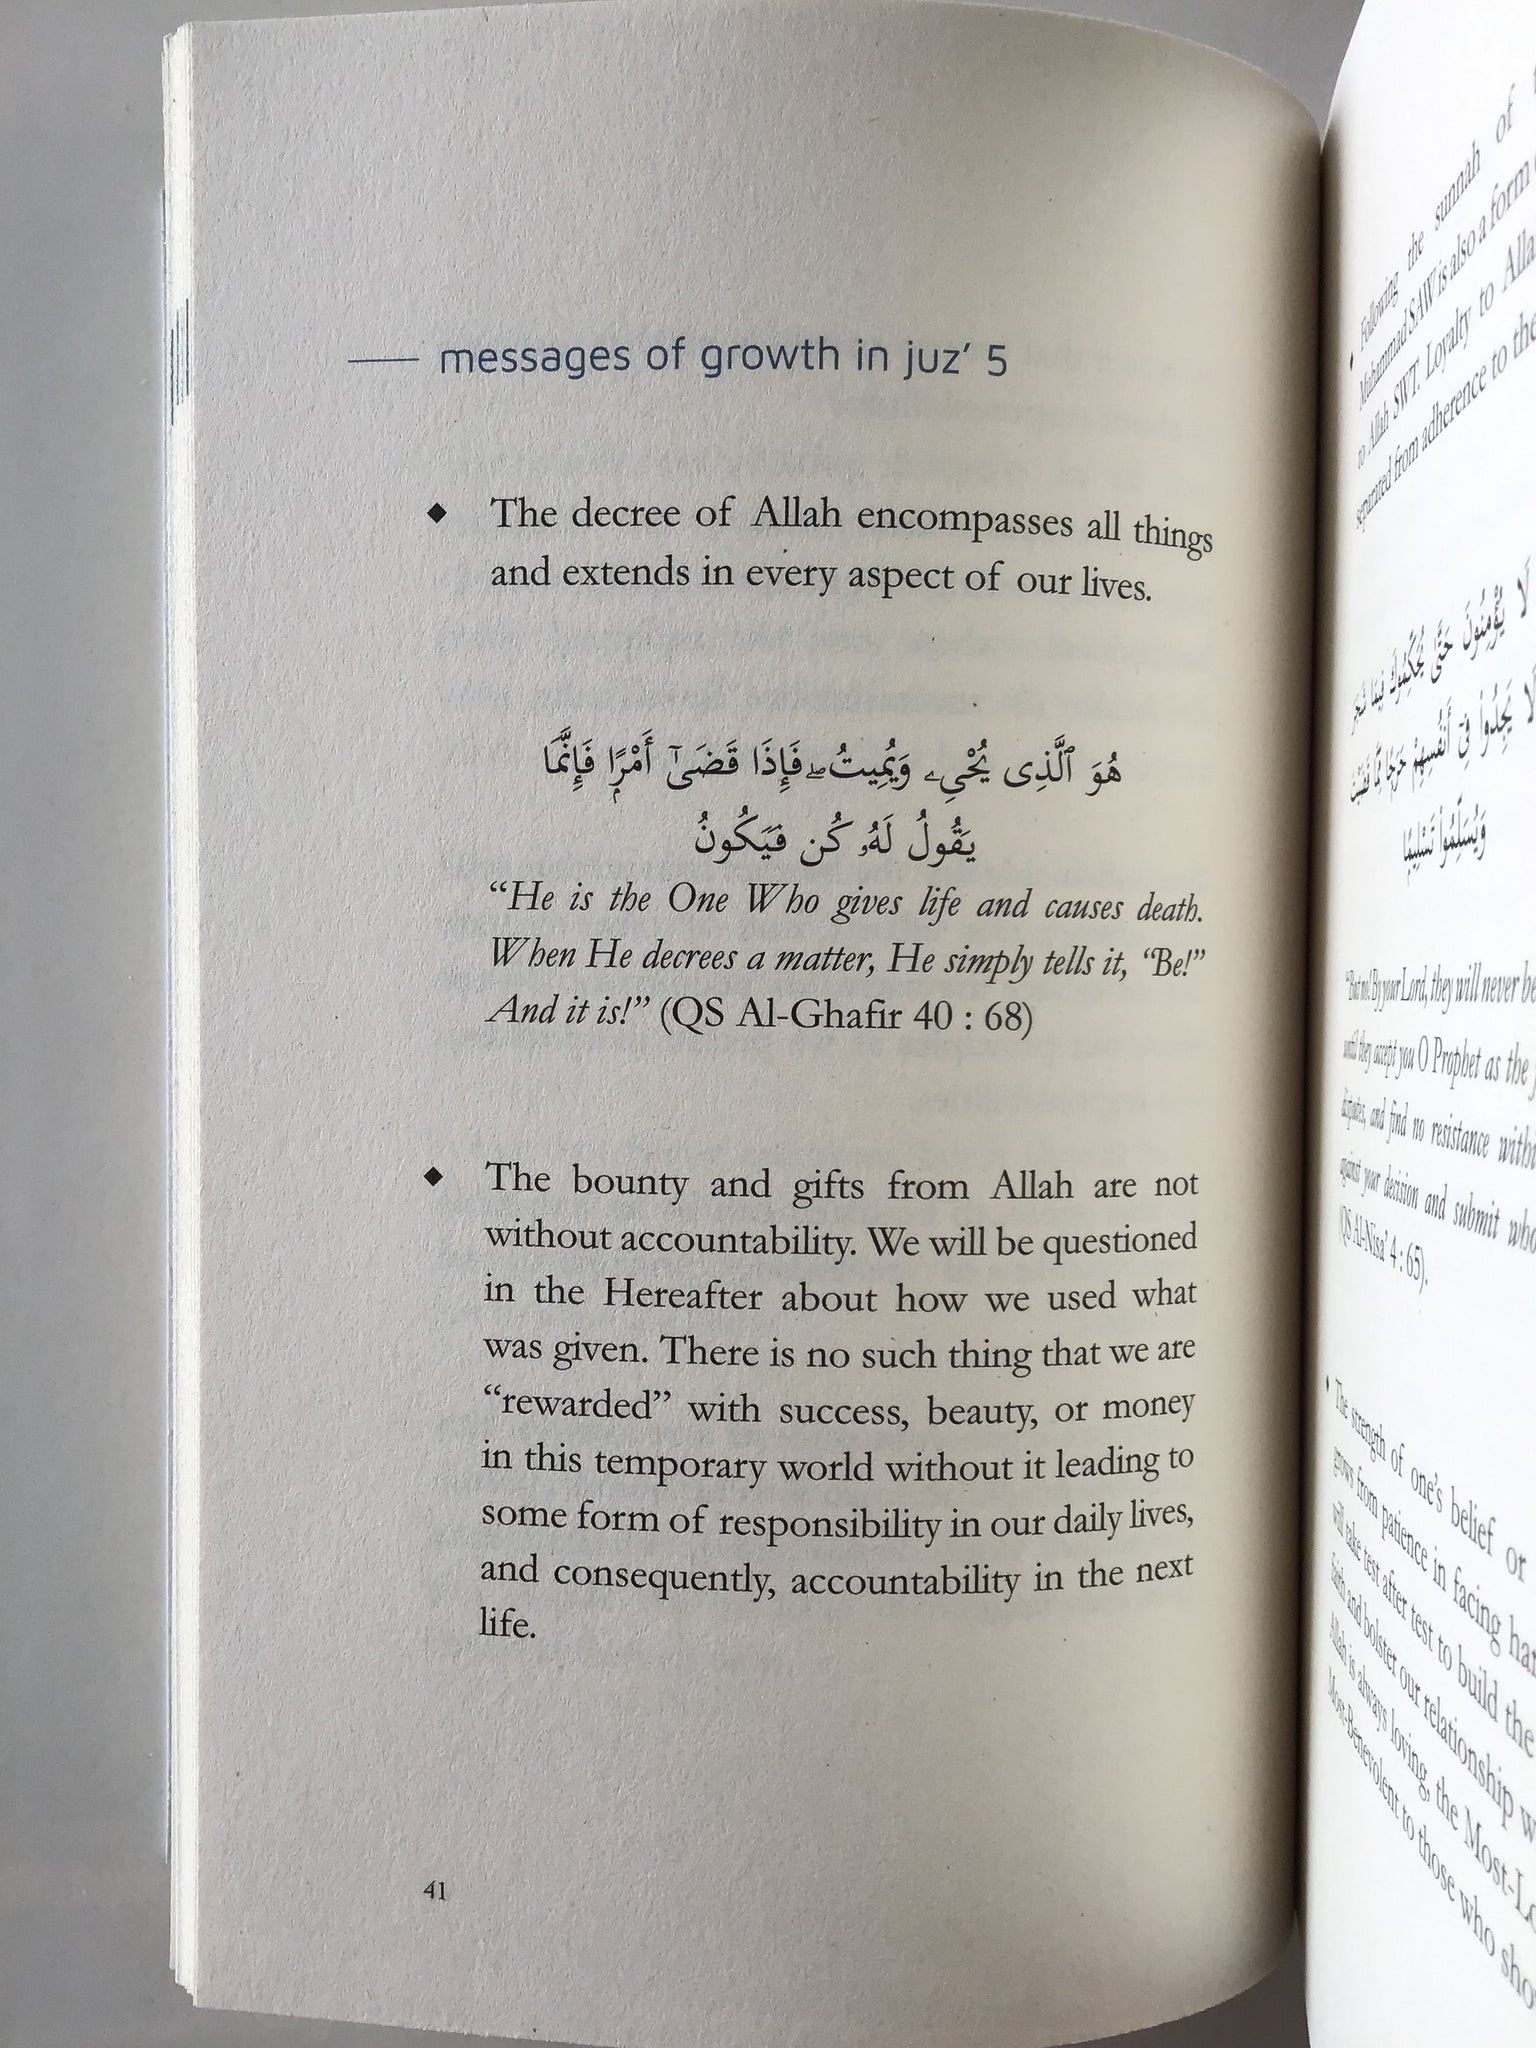 messages of growth in juz' 5
◆ The decree of Allah encompasses all things
and extends in every aspect of our lives.
هُوَ ٱلَّذِى يُحْىِۦ وَيُمِيتُ ۖ فَإِذَا قَضَىٰٓ أَمْرًۭا فَإِنَّمَا
يَقُولُ لَهُۥ كُن فَيَكُونُ
“He is the One Who gives life and causes death.
When He decrees a matter, He simply tells it, “Be!”
And it is!” (QS Al-Ghafir 40 : 68)
◆ The bounty and gifts from Allah are not
without accountability. We will be questioned
in the Hereafter about how we used what
was given. There is no such thing that we are
“rewarded” with success, beauty, or money
in this temporary world without it leading to
some form of responsibility in our daily lives,
and consequently, accountability in the next
life.
41
Following the sunnah of
Muhammad SAW is also a form
to Allah SWT. Loyalty to
separated from adherence to the
لَا يُؤْمِنُونَ حَتَّىٰ يُحَكِّمُوكَ فِيمَا شَجَرَ
لَا يَجِدُوا۟ فِىٓ أَنفُسِهِمْ حَرَجًۭا مِّمَّا قَضَيْتَ
وَيُسَلِّمُوا۟ تَسْلِيمًۭا
“But no! By your Lord, they will never be
until they accept you O Prophet as the
disputes, and find no resistance
against your decision and submit
(QS Al-Nisa’ 4 : 65).
The strength of one’s belief or
grows from patience in facing
will take test after test to build the
faith and bolster our relationship
Allah is always loving, the
Most-Benevolent to those who